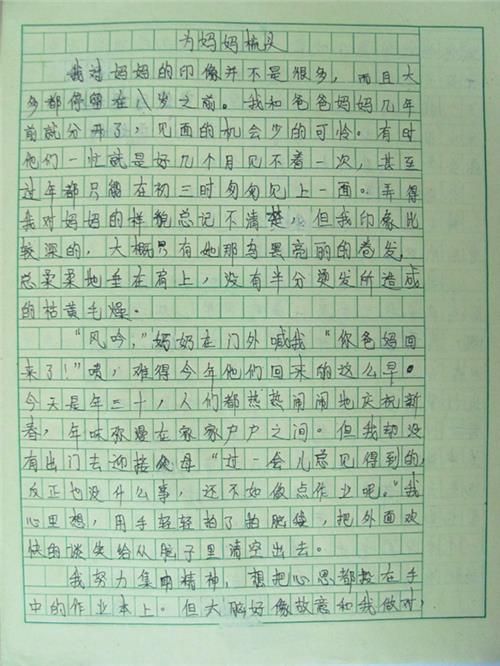 为妈妈梳头
我对妈妈的印像并不是很多，而且大
多都停留在八岁之前。我和爸爸妈妈几年
前就分开了，见面的机会少的可怜。有时
他们一忙就是好几个月见不着一次，甚至
过年都只能在初三时匆匆见上一面。弄得
我对妈妈的样貌总记不清楚，但我印象比
较深的，大概只有她那乌黑亮丽的卷发，
总柔柔地垂在肩上，没有半分烫发所造成
的枯黄毛燥。
“风吟，”奶奶在门外喊我“你爸妈回
来了！”啧，难得今年他们回来的这么早。
今天是年三十，人们都热热闹闹地庆祝新
春，年味弥漫在家家户户之间。但我却没
有出门去迎接父母“过一会儿总见得到的，
反正也没什么事，还不如做点作业呢。”我
心里想，用手轻轻拍了拍脸袋，把外面欢
快的谈笑给从脑子里清空出去。
我努力集中精神，想把心思都放在手
中的作业本上。但大脑好像故意和我做对，